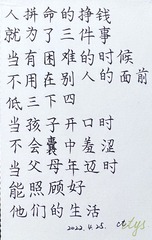 人拼命的挣钱
就为了三件事
当有困难的时候
不用在别人的面前
低三下四
当孩子开口时
不会囊中羞涩
当父母年迈时
能照顾好
他们的生活
2022.4.25.
tys